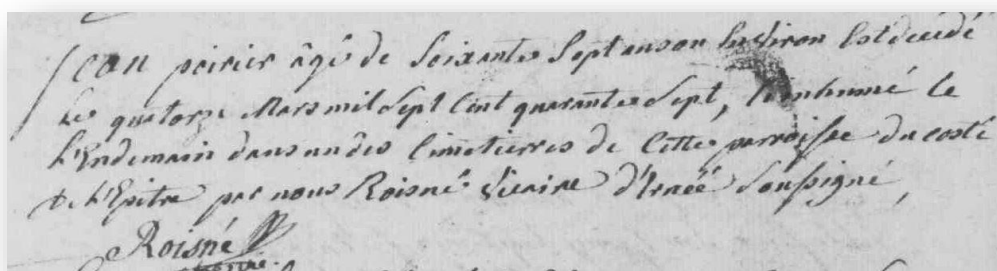 Jean poirier âgé de soixante sept ans ou Environ Est décédé
le quatorze Mars mil sept Cent quarante sept, & inhumé le
l'Endemain dans un des Cimetierres de Cette parroisse du costé
de l'Epitre par nous Roisné Vicaire d'Ernée soussigné,
Roisné